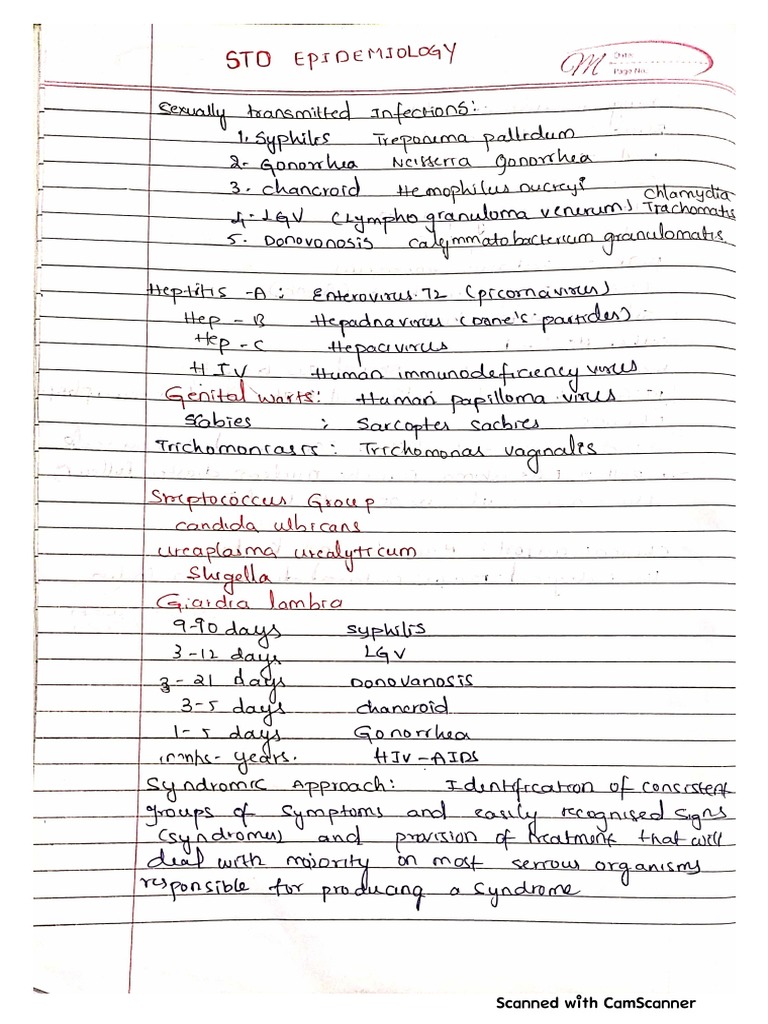 STD EPIDEMIOLOGY
M Date:
Page No.
Sexually transmitted Infections:
1. Syphiles Treponema palledum
2- Gonorrhea Neisserra Gonorrhea
3. chancroid Hemophilus nucreyi
4- LGV (Lympho granuloma venerum) Chlamydia Trachomatis
5. Donovonosis calymmatobacterium granulomatis
Heptitis -A : Enterovirus 72 (picornavirus)
Hep - B Hepadnavirus (Dane's particles)
Hep - C Hepacivirus
HIV Human immunodeficiency virus
Genital warts: Human papilloma virus
Scabies : Sarcoptes sacbies
Trichomoniasis : Trichomonas vaginalis
Streptococcus Group
candida albicans
ureaplasma urealyticum
Shigella
Giardia lambia
9-90 days syphilis
3-12 days LGV
3-21 days Donovanosis
3-5 days chancroid
1-5 days Gonorrhea
years. HIV-AIDS
Syndromic Approach: Identification of consistent
groups of symptoms and easily recognised signs
(syndromes) and provision of treatment that will
deal with majority on most serious organisms
responsible for producing a syndrome
Scanned with CamScanner